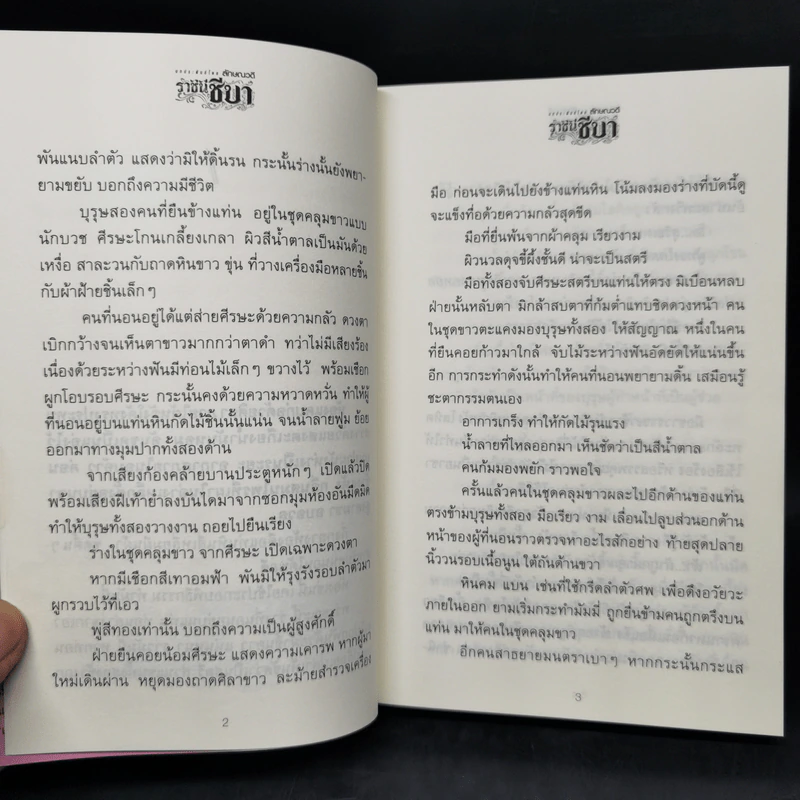 ลักษณวดี
ราชินีชีบา
พันแนบลำตัว แสดงว่ามิให้ดิ้นรน กระนั้นร่างนั้นยังพยา-
ยามขยับ บอกถึงความมีชีวิต
บุรุษสองคนที่ยืนข้างแท่น อยู่ในชุดคลุมขาวแบบ
นักบวช ศีรษะโกนเกลี้ยงเกลา ผิวสีน้ำตาลเป็นมันด้วย
เหงื่อ สาละวนกับถาดหินขาว ขุ่น ที่วางเครื่องมือหลายชิ้น
กับผ้าฝ้ายชิ้นเล็กๆ
คนที่นอนอยู่ได้แต่ส่ายศีรษะด้วยความกลัว ดวงตา
เบิกกว้างจนเห็นตาขาวมากกว่าตาดำ ทว่าไม่มีเสียงร้อง
เนื่องด้วยระหว่างฟันมีท่อนไม้เล็กๆ ขวางไว้ พร้อมเชือก
ผูกโอบรอบศีรษะ กระนั้นคงด้วยความหวาดหวั่น ทำให้ผู้
ที่นอนอยู่บนแท่นหินกัดไม้ชิ้นนั้นแน่น จนน้ำลายฟูม ย้อย
ออกมาทางมุมปากทั้งสองด้าน
จากเสียงก้องคล้ายบานประตูหนักๆ เปิดแล้วปิด
พร้อมเสียงฝีเท้าย่ำลงบันไดมาจากซอกมุมห้องอันมืดมิด
ทำให้บุรุษทั้งสองวางงาน ถอยไปยืนเรียง
ร่างในชุดคลุมขาว จากศีรษะ เปิดเฉพาะดวงตา
หากมีเชือกสีเทาอมฟ้า พันมิให้รุงรังรอบลำตัวมา
ผูกรวบไว้ที่เอว
พู่สีทองเท่านั้น บอกถึงความเป็นผู้สูงศักดิ์
ฝ่ายยืนคอยน้อมศีรษะ แสดงความเคารพ หากผู้มา
ใหม่เดินผ่าน หยุดมองถาดศิลาขาว ละม้ายสำรวจเครื่อง
2
ลักษณวดี
ราชินีชีบา
มือ ก่อนจะเดินไปยังข้างแท่นหิน โน้มลงมองร่างที่บัดนี้ดู
จะแข็งทื่อด้วยความกลัวสุดขีด
มือที่ยื่นพ้นจากผ้าคลุม เรียวงาม
ผิวนวลดุจขี้ผึ้งชั้นดี น่าจะเป็นสตรี
มือทั้งสองจับศีรษะสตรีบนแท่นให้ตรง มิเบือนหลบ
ฝ่ายนั้นหลับตา มิกล้าสบตาที่ก้มต่ำแทบชิดดวงหน้า คน
ในชุดขาวตะแคงมองบุรุษทั้งสอง ให้สัญญาณ หนึ่งในคน
ที่ยืนคอยก้าวมาใกล้ จับไม้ระหว่างฟันอัดยัดให้แน่นขึ้น
อีก การกระทำดังนั้นทำให้คนที่นอนพยายามดิ้น เสมือนรู้
ชะตากรรมตนเอง
อาการเกร็ง ทำให้กัดไม้รุนแรง
น้ำลายที่ไหลออกมา เห็นชัดว่าเป็นสีน้ำตาล
คนก้มมองพยัก ราวพอใจ
ครั้นแล้วคนในชุดคลุมขาวผละไปอีกด้านของแท่น
ตรงข้ามบุรุษทั้งสอง มือเรียว งาม เลื่อนไปลูบส่วนอกด้าน
หน้าของผู้ที่นอนราวตรวจหาอะไรสักอย่าง ท้ายสุดปลาย
นิ้ววนรอบเนื้อนูน ใต้ถันด้านขวา
หินคม แบน เช่นที่ใช้กรีดลำตัวศพ เพื่อดึงอวัยวะ
ภายในออก ยามเริ่มกระทำมัมมี่ ถูกยื่นข้ามคนถูกตรึงบน
แท่น มาให้คนในชุดคลุมขาว
อีกคนสาธยายมนตราเบาๆ หากกระนั้นกระแส
3